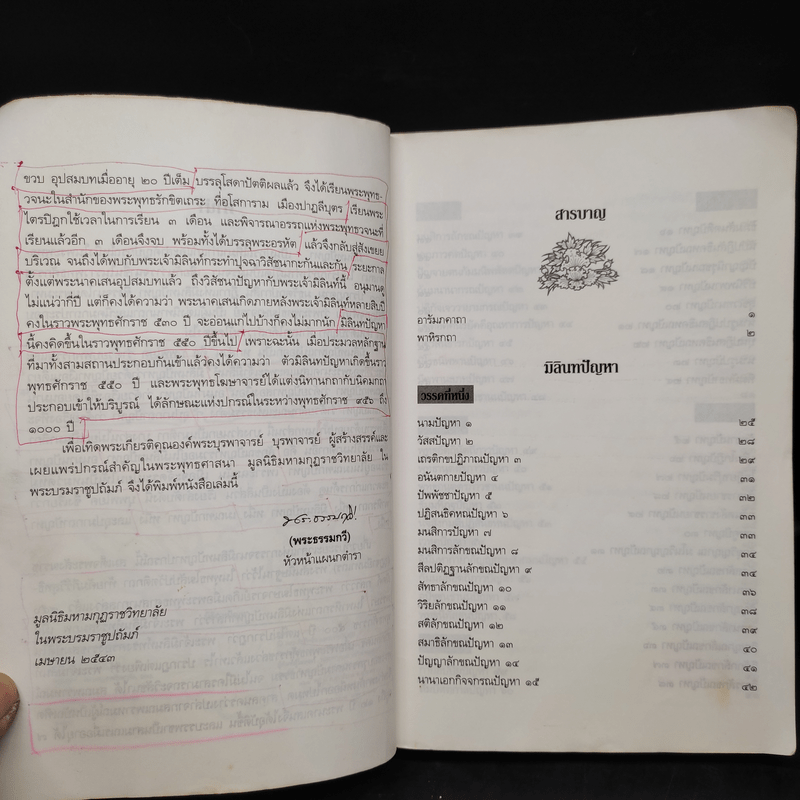 ขวบ อุปสมบทเมื่ออายุ ๒๐ ปีเต็ม บรรลุโสดาปัตติผลแล้ว จึงได้เรียนพระพุทธ-
วจนะในสำนักของพระพุทธรักขิตเถระ ที่อโสการาม เมืองปาฏลีบุตร เรียนพระ
ไตรปิฎกใช้เวลาในการเรียน ๓ เดือน และพิจารณาอรรถแห่งพุทธวจนะที่
เรียนแล้วอีก ๓ เดือนจึงจบ พร้อมทั้งได้บรรลุพระอรหัต แล้วจึงกลับสู่สังเขยย
บริเวณ จนถึงได้พบกับพระเจ้ามิลินท์กระทำปุจฉาวิสัชนากะกันและกัน ระยะกาล
ตั้งแต่พระนาคเสนอุปสมบทแล้ว ถึงวิสัชนาปัญหากับพระเจ้ามิลินท์นี้ อนุมานดู
ไม่แน่ว่ากี่ปี แต่ก็คงได้ความว่า พระนาคเสนเกิดภายหลังพระเจ้ามิลินท์หลายสิบปี
คงในราวพระพุทธศักราช ๕๓๐ ปี จะอ่อนแก่ไปบ้างก็คงไม่มากนัก มิลินทปัญหา
นี้คงคิดขึ้นในราวพุทธศักราช ๕๕๐ ปีขึ้นไป เพราะฉะนั้น เมื่อประมวลหลักฐาน
ที่มาทั้งสามสถานประกอบกันเข้าแล้วคงได้ความว่า ตัวมิลินทปัญหาเกิดขึ้นราว
พุทธศักราช ๕๕๐ ปี และพระพุทธโฆษาจารย์ได้แต่งนิทานกถากับนิคมกถา
ประกอบเข้าให้บริบูรณ์ ได้ลักษณะแห่งปกรณ์ในระหว่างพุทธศักราช ๙๕๖ ถึง
๑๐๐๐ ปี
เพื่อเทิดพระเกียรติคุณองค์พระบุรพาจารย์ บุรพาจารย์ ผู้สร้างสรรค์และ
เผยแพร่ปกรณ์สำคัญในพระพุทธศาสนา มูลนิธิมหามกุฏราชวิทยาลัย ใน
พระบรมราชูปถัมภ์ จึงได้พิมพ์หนังสือเล่มนี้
(พระธรรมกวี)
หัวหน้าแผนกตำรา
มูลนิธิมหามกุฏราชวิทยาลัย
ในพระบรมราชูปถัมภ์
เมษายน ๒๕๔๓
สารบาญ
อารัมภคาถา ๑
พาหิรกถา ๒
มิลินทปัญหา
วรรคที่หนึ่ง
นามปัญหา ๑ ๒๕
วัสสปัญหา ๒ ๒๘
เถรติกขปฏิภาณปัญหา ๓ ๒๙
อนันตกายปัญหา ๔ ๓๑
ปัพพัชชาปัญหา ๕ ๓๒
ปฏิสนธิคหณปัญหา ๖ ๓๓
มนสิการปัญหา ๗ ๓๓
มนสิการลักขณปัญหา ๘ ๓๔
สีลปติฏฐานลักขณปัญหา ๙ ๓๔
สัทธาลักขณปัญหา ๑๐ ๓๖
วิริยลักขณปัญหา ๑๑ ๓๘
สติลักขณปัญหา ๑๒ ๓๙
สมาธิลักขณปัญหา ๑๓ ๔๐
ปัญญาลักขณปัญหา ๑๔ ๔๑
นานาเอกกิจจกรณปัญหา ๑๕ ๔๒